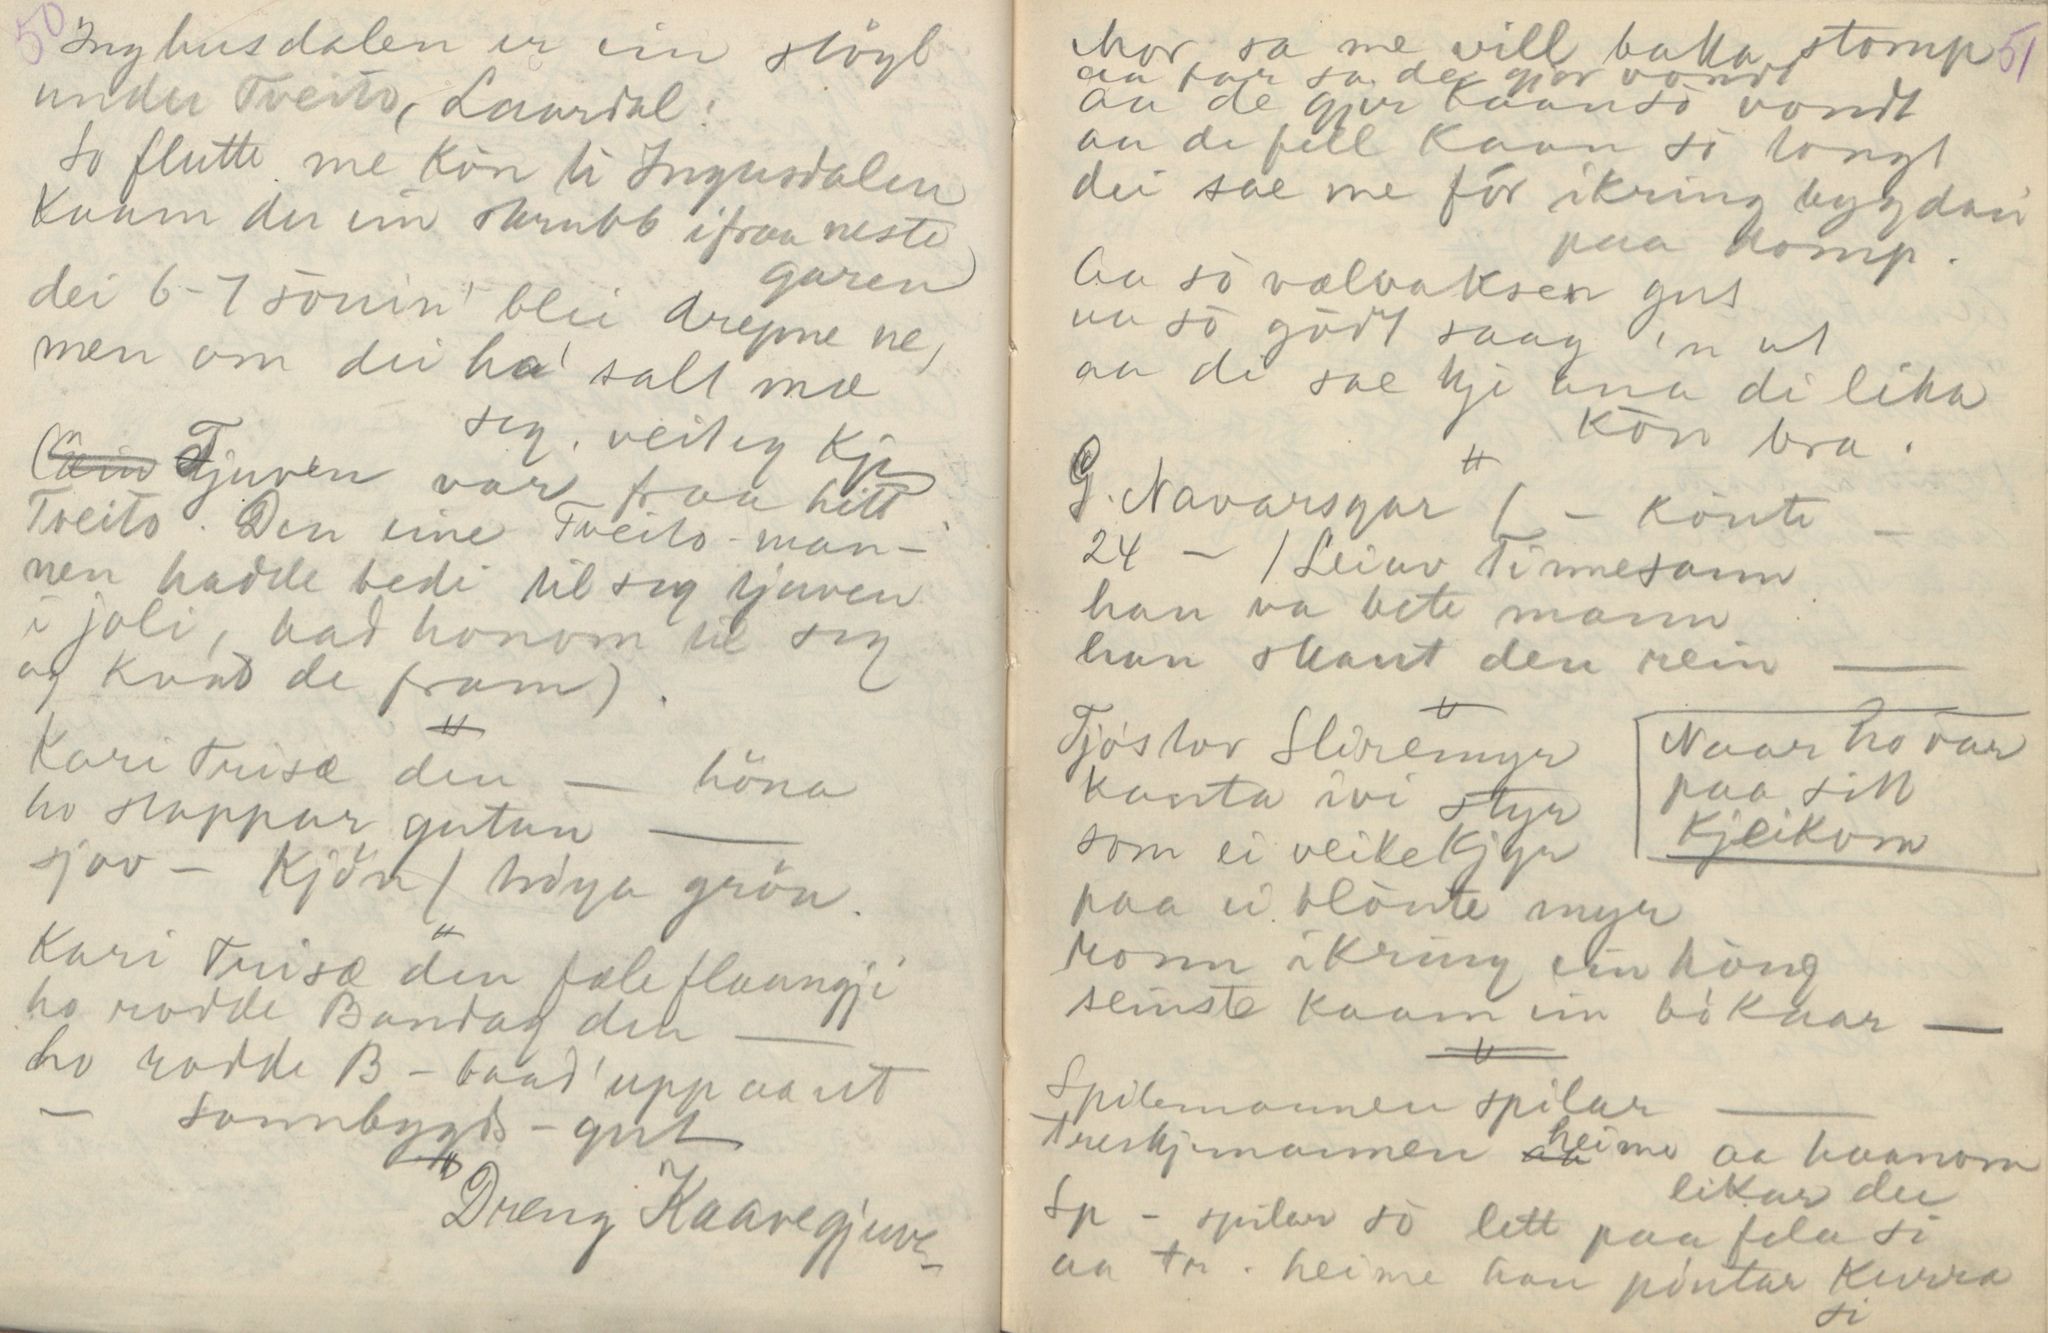 50
Inghusdalen er ein slögt
under Tveito, Laardal:
So flutte me kön ti Ingusdalen
kaam der ein skrubb ifraa neste
garen
dei 6-7 söuin' blei drepne ne,
men om dei ha' salt mæ
seg, veit eg kje
Tjuven var fraa hitt
Tveito. Den eine Tveito-man-
nen hadde bedi til seg tjuven
i joli, bad honom til seg
og kvad de fram).
"
Kari Trisæ den — höna
ho stappar gutan —
sjav - Kjön / höga grön.
"
Kari Trisæ den fæle flaangji
ho rodde Bandag den —
ho rodde B - baad' upp aa ut
— saunbygds - gut
"
Dreng Kaavegjuv-
51
Mor sa me vill baka stomp
aa far sa de gjor vondt
aa de gjer kaan sö vondt
aa de fell kaan sö tongt
dei sae me för ikring bygdan
paa komp.
Aa sö vælvaksen gut
aa sö gödt saag 'n ut
aa di sae kje ana di lika
kön bra.
"
G. Navarsgar / - könte -
24 - / Leiuv Tinnesaun
han va bete mann
han skaut den rein —
"
Tjöstov Slireimyr
kanta ivi styr
som ei veikekjyr
paa ei blönte myr
konn ikring ein höug
seinste kaam ein bö kaar —
Naar ho var
paa sitt
kjeikom
"
Spilemannen spilar —
Treskjemannen heime aa haanom
likar dei
Sp - spilar sö lett paa fela si
aa tr. heime han pöntar kurra
si